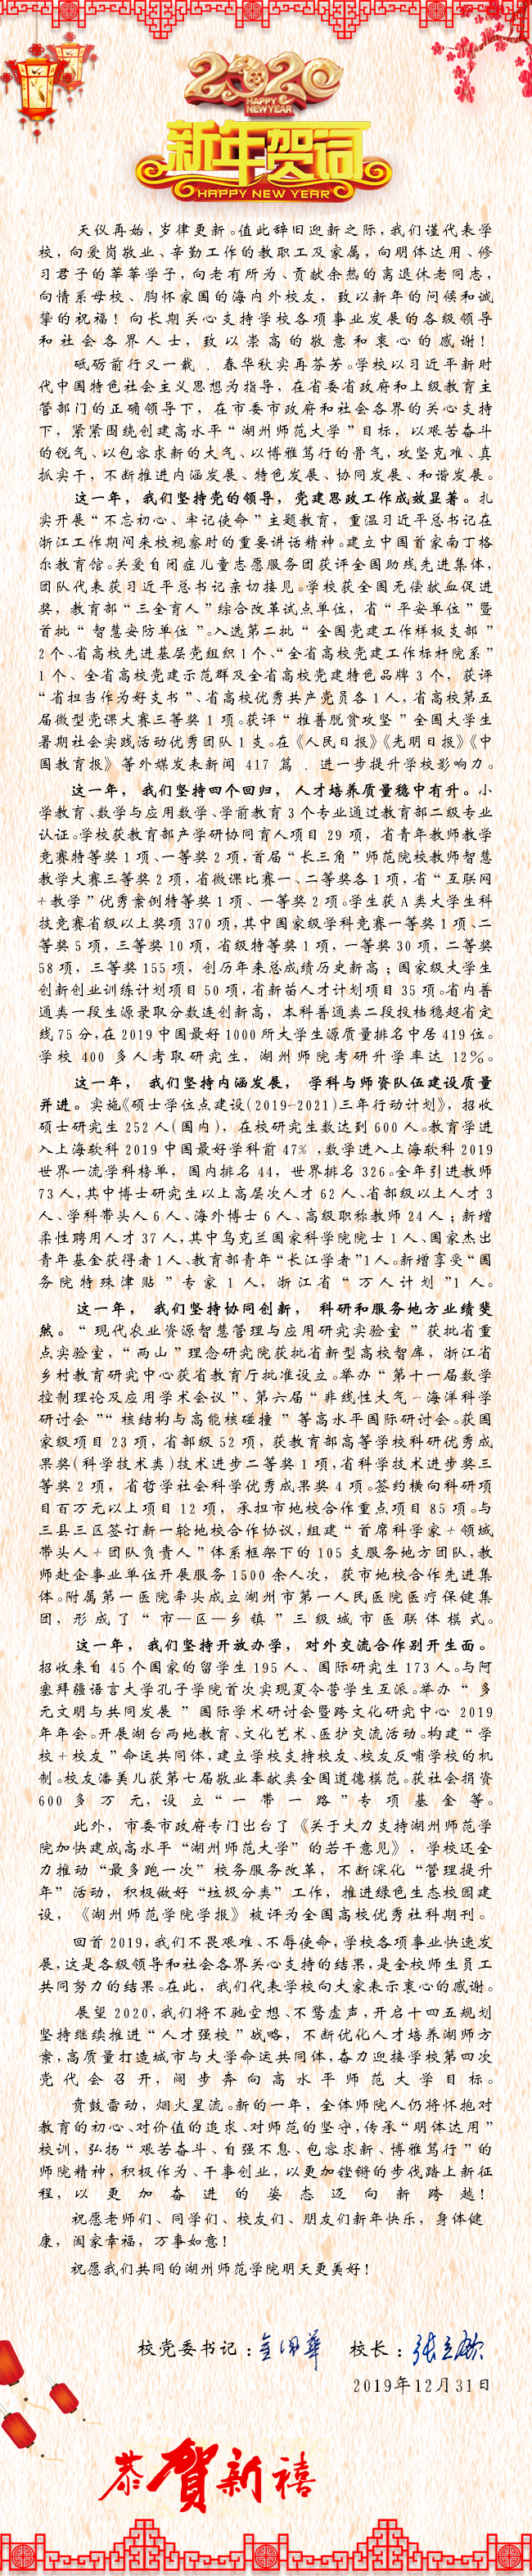 2020
HAPPY
NEW YEAR
新年贺词
HAPPY NEW YEAR
天仪再始,岁律更新。值此辞旧迎新之际,我们谨代表学
校,向爱岗敬业、辛勤工作的教职工及家属,向明体达用、修
习君子的莘莘学子,向老有所为、贡献余热的离退休老同志,
向情系母校、胸怀家国的海内外校友,致以新年的问候和诚
挚的祝福!向长期关心支持学校各项事业发展的各级领导
和社会各界人士,致以崇高的敬意和衷心的感谢!
砥砺前行又一载,春华秋实再芬芳。学校以习近平新时
代中国特色社会主义思想为指导,在省委省政府和上级教育主
管部门的正确领导下,在市委市政府和社会各界的关心支持
下,紧紧围绕创建高水平“湖州师范大学”目标,以艰苦奋斗
的锐气、以包容求新的大气、以博雅笃行的骨气,攻坚克难、真
抓实干,不断推进内涵发展、特色发展、协同发展、和谐发展。
这一年,我们坚持党的领导,党建思政工作成效显著。扎
实开展“不忘初心、牢记使命”主题教育,重温习近平总书记在
浙江工作期间来校视察时的重要讲话精神。建立中国首家南丁格
尔教育馆。关爱自闭症儿童志愿服务团获评全国助残先进集体,
团队代表获习近平总书记亲切接见。学校获全国无偿献血促进
奖,教育部“三全育人”综合改革试点单位,省“平安单位”暨
首批“智慧安防单位”。入选第二批“全国党建工作样板支部”
2个、省高校先进基层党组织1个、“全省高校党建工作标杆院系”
1个、全省高校党建示范群及全省高校党建特色品牌3个,获评
“省担当作为好支书”、省高校优秀共产党员各1人,省高校第五
届微型党课大赛三等奖1项。获评“推普脱贫攻坚”全国大学生
暑期社会实践活动优秀团队1支。在《人民日报》《光明日报》《中
国教育报》等外媒发表新闻417篇,进一步提升学校影响力。
这一年,我们坚持四个回归,人才培养质量稳中有升。小
学教育、数学与应用数学、学前教育3个专业通过教育部二级专业
认证。学校获教育部产学研协同育人项目29项,省青年教师教学
竞赛特等奖1项、一等奖2项,首届“长三角”师范院校教师智慧
教学大赛三等奖2项,省微课比赛一、二等奖各1项,省“互联网
+教学”优秀案例特等奖1项、一等奖2项。学生获A类大学生科
技竞赛省级以上奖项370项,其中国家级学科竞赛一等奖1项、二
等奖5项,三等奖10项,省级特等奖1项,一等奖30项,二等奖
58项,三等奖155项,创历年来总成绩历史新高;国家级大学生
创新创业训练计划项目50项,省新苗人才计划项目35项。省内普
通类一段生源录取分数连创新高,本科普通类二段投档稳超省定
线75分,在2019中国最好1000所大学生源质量排名中居419位。
学校400多人考取研究生,湖州师院考研升学率达12%。
这一年,我们坚持内涵发展,学科与师资队伍建设质量
并进。实施《硕士学位点建设(2019-2021)三年行动计划》,招收
硕士研究生252人(国内),在校研究生数达到600人。教育学进
入上海软科2019中国最好学科前47%,数学进入上海软科2019
世界一流学科榜单,国内排名44,世界排名326。全年引进教师
73人,其中博士研究生以上高层次人才62人、省部级以上人才3
人、学科带头人6人、海外博士6人、高级职称教师24人;新增
柔性聘用人才37人,其中乌克兰国家科学院院士1人、国家杰出
青年基金获得者1人、教育部青年“长江学者”1人。新增享受“国
务院特殊津贴”专家1人,浙江省“万人计划”1人。
这一年,我们坚持协同创新,科研和服务地方业绩斐
然。“现代农业资源智慧管理与应用研究实验室”获批省重
点实验室,“两山”理念研究院获批省新型高校智库,浙江省
乡村教育研究中心获省教育厅批准设立。举办“第十一届数学
控制理论及应用学术会议”、第六届“非线性大气-海洋科学
研讨会”“核结构与高能核碰撞”等高水平国际研讨会。获国
家级项目23项,省部级52项,获教育部高等学校科研优秀成
果奖(科学技术类)技术进步二等奖1项,省科学技术进步奖三
等奖2项,省哲学社会科学优秀成果奖4项。签约横向科研项
目百万元以上项目12项,承担市地校合作重点项目85项。与
三县三区签订新一轮地校合作协议,组建“首席科学家+领域
带头人+团队负责人”体系框架下的105支服务地方团队,教
师赴企事业单位开展服务1500余人次,获市地校合作先进集
体。附属第一医院牵头成立湖州市第一人民医院医疗保健集
团,形成了“市—区—乡镇”三级城市医联体模式。
这一年,我们坚持开放办学,对外交流合作别开生面。
招收来自45个国家的留学生195人、国际研究生173人。与阿
塞拜疆语言大学孔子学院首次实现夏令营学生互派。举办“多
元文明与共同发展”国际学术研讨会暨跨文化研究中心2019
年年会。开展湖台两地教育、文化艺术、医护交流活动。构建“学
校+校友”命运共同体,建立学校支持校友、校友反哺学校的机
制。校友潘美儿获第七届敬业奉献类全国道德模范。获社会捐资
600多万元,设立“一带一路”专项基金等。
此外,市委市政府专门出台了《关于大力支持湖州师范学
院加快建成高水平“湖州师范大学”的若干意见》,学校还全
力推动“最多跑一次”校务服务改革,不断深化“管理提升
年”活动,积极做好“垃圾分类”工作,推进绿色生态校园建
设,《湖州师范学院学报》被评为全国高校优秀社科期刊。
回首2019,我们不畏艰难、不辱使命,学校各项事业快速发
展,这是各级领导和社会各界关心支持的结果,是全校师生员工
共同努力的结果。在此,我们代表学校向大家表示衷心的感谢。
展望2020,我们将不驰空想、不骛虚声,开启十四五规划
坚持继续推进“人才强校”战略,不断优化人才培养湖师方
案,高质量打造城市与大学命运共同体,奋力迎接学校第四次
党代会召开,阔步奔向高水平师范大学目标。
贲鼓雷动,烟火星流。新的一年,全体师院人仍将怀抱对
教育的初心、对价值的追求、对师范的坚守,传承“明体达用”
校训,弘扬“艰苦奋斗、自强不息、包容求新、博雅笃行”的
师院精神,积极作为、干事创业,以更加铿锵的步伐踏上新征
程,以更加奋进的姿态迈向新跨越!
祝愿老师们、同学们、校友们、朋友们新年快乐,身体健
康,阖家幸福,万事如意!
祝愿我们共同的湖州师范学院明天更美好!
校党委书记:金佩华 校长:张立钦
2019年12月31日
恭贺新禧